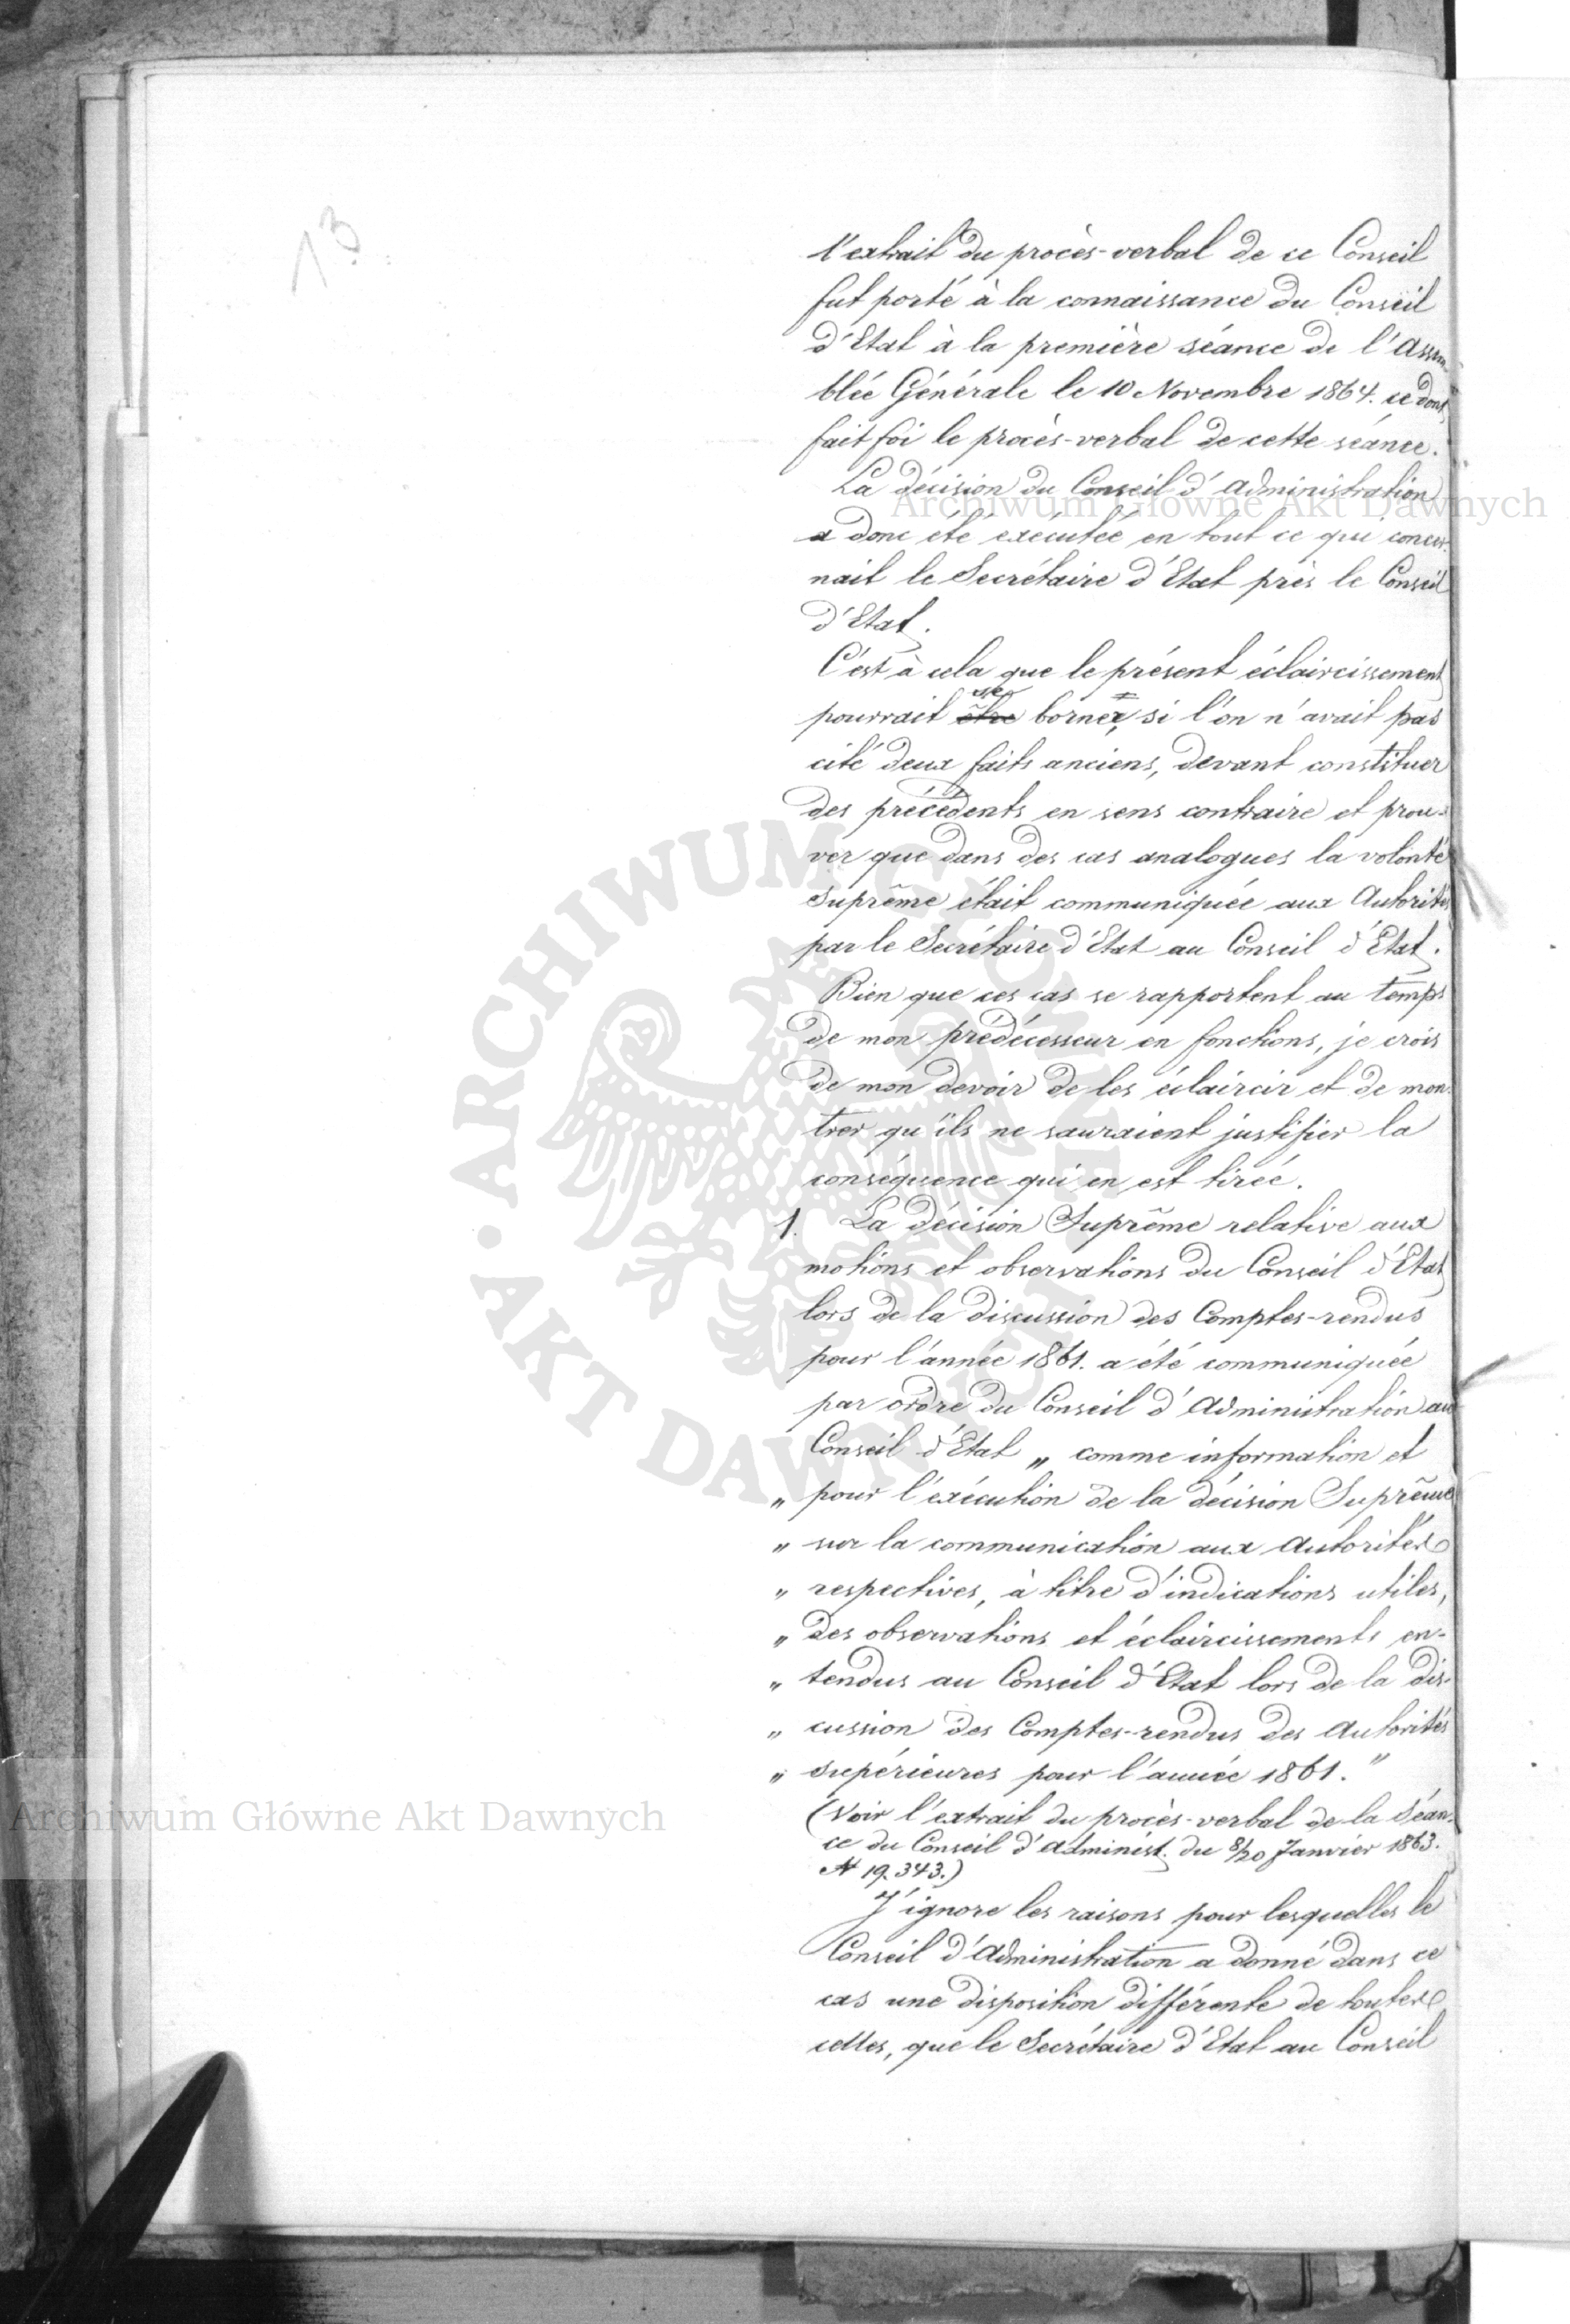 13.
l'extrait du procès-verbal de ce Conseil
fut porté à la connaissance du Conseil
d'Etat à la première séance de l'Assem-
blée Générale le 10 Novembre 1864. ce dont
fait foi le procès-verbal de cette séance.
La décision du Conseil d'Administration
a donc été exécutée en tout ce qui concer-
nait le Secrétaire d'Etat près le Conseil
d'Etat.
C'est à cela que le présent éclaircissement
se
pourrait être borner, si l'on n'avait pas
cité deux faits anciens, devant constituer
des précédents en sens contraire et prou-
ver que dans des cas analogues la volonté
Suprême était communiquée aux Autorités
par le Secrétaire d'Etat au Conseil d'Etat.
Bien que ces cas se rapportent au temps
de mon prédécesseur en fonctions, je crois
de mon devoir de les éclaircir et de mon-
trer qu'ils ne sauraient justifier la
conséquence qui en est tirée.
1. La décision Suprême relative aux
motions et observations du Conseil d'Etat
lors de la discussion des Comptes-rendus
pour l'année 1861. a été communiquée
par ordre du Conseil d'Administration au
Conseil d'Etat „ comme information et
„ pour l'exécution de la décision Suprême
„ sur la communication aux Autorités
„ respectives, à titre d'indications utiles,
„ des observations et éclaircissements en-
„ tendus au Conseil d'Etat lors de la dis-
„ cussion des Comptes-rendus des Autorités
„ supérieures pour l'année 1861."
(Voir l'extrait du procès-verbal de la Séan-
ce du Conseil d'Administ. du 8/20 Janvier 1863.
№ 19.343.)
J'ignore les raisons pour lesquelles le
Conseil d'Administration a donné dans ce
cas une disposition différente de toutes
celles, que le Secrétaire d'Etat au Conseil
Archiwum Główne Akt Dawnych
ARCHIWUM GŁÓWNE AKT DAWNYCH
Archiwum Główne Akt Dawnych